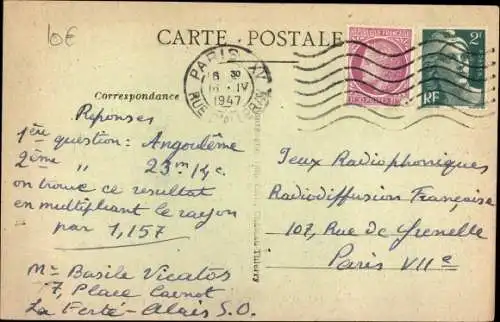 6€
CARTE POSTALE
PARIS XV
6 30
16 IV
1947
RUE
REPUBLIQUE FRANÇAISE
2F
RF
Correspondance
Réponses
1ère question : Angoulême
2ème " 23m
on trouve ce résultat
en multipliant le rayon
par 1,157
Mr Basile Vicatos
7, Place Carnot
La Ferté-Alais S.O.
Jeux Radiophoniques
Radiodiffusion Française
107, Rue de Grenelle
Paris VIIe